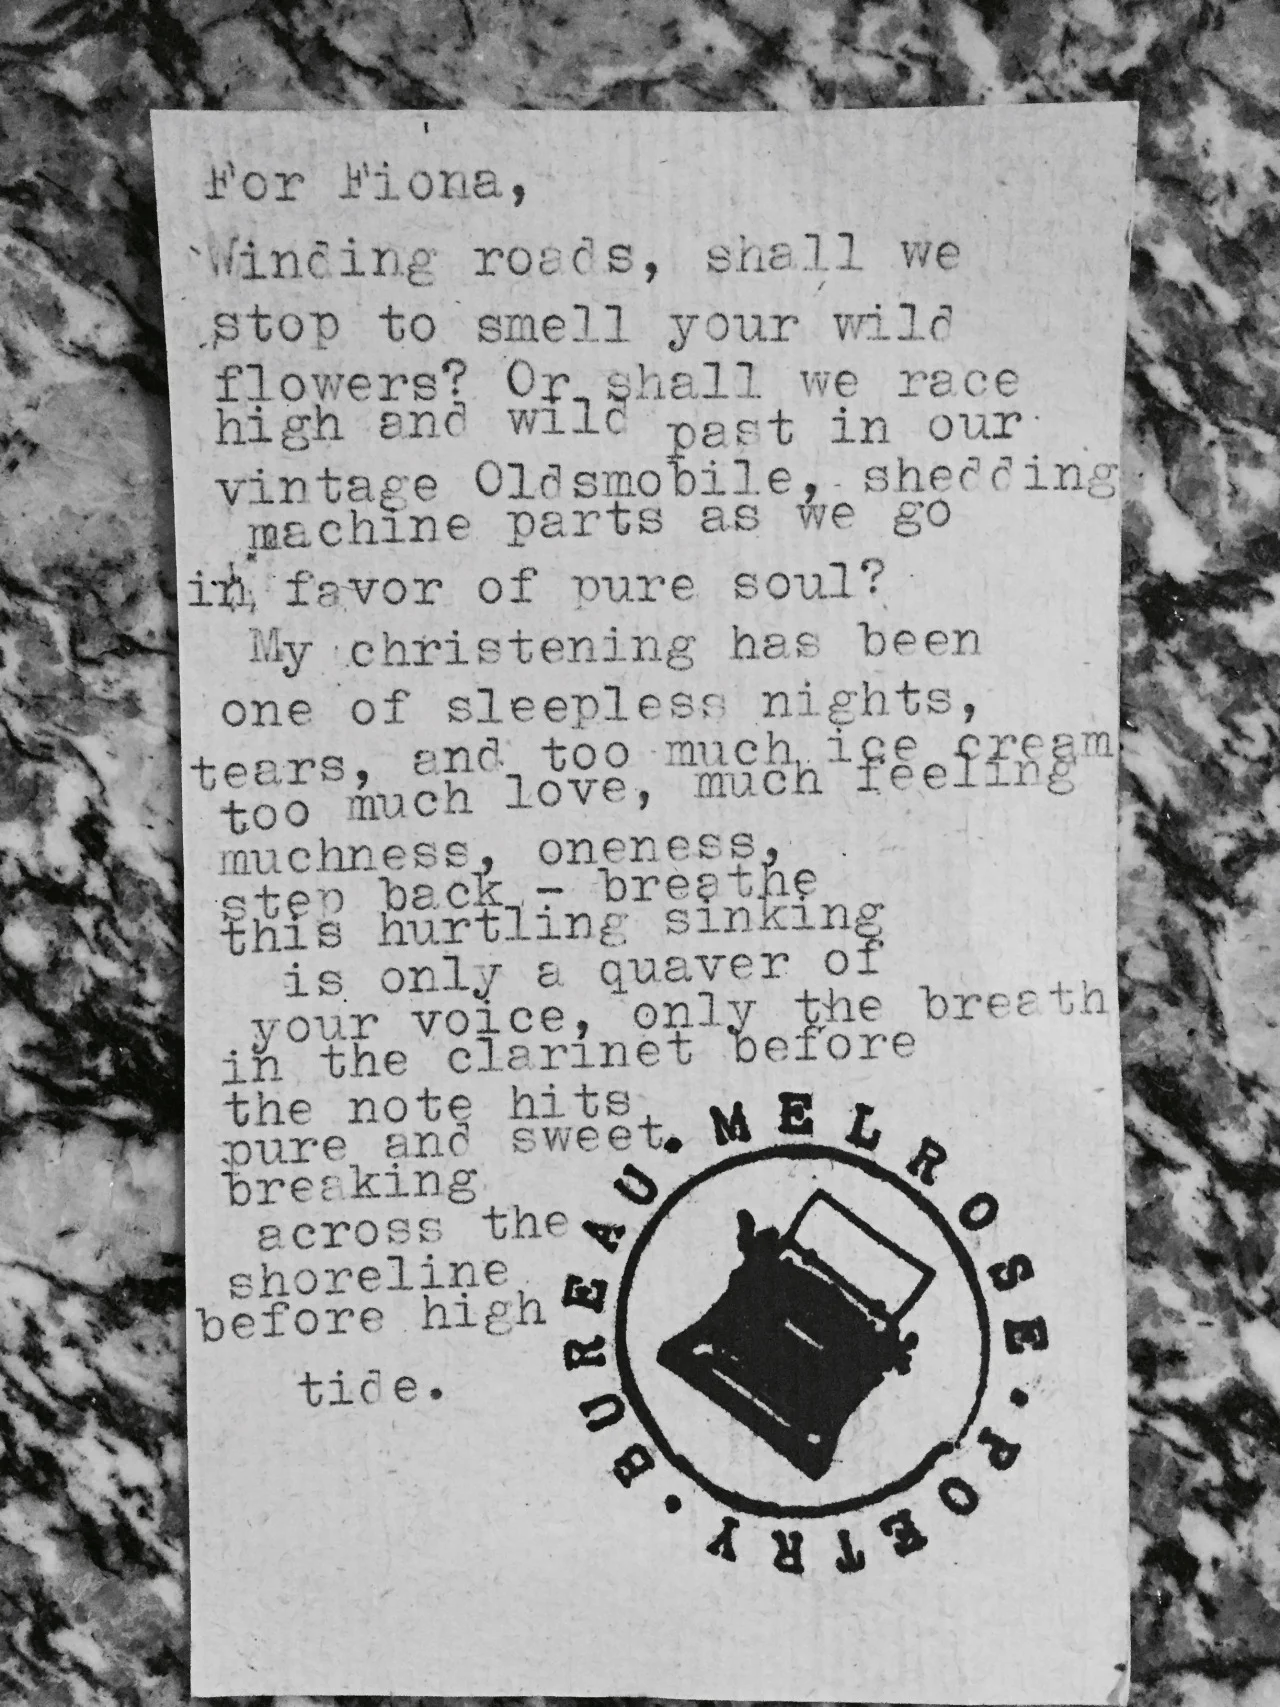 For Fiona,
Winding roads, shall we
stop to smell your wild
flowers? Or shall we race
high and wild past in our
vintage Oldsmobile, shedding
machine parts as we go
in favor of pure soul?
My christening has been
one of sleepless nights,
tears, and too much ice cream
too much love, much feeling
muchness, oneness,
step back - breathe
this hurtling sinking
is only a quaver of
your voice, only the breath
in the clarinet before
the note hits
pure and sweet
breaking
across the
shoreline
before high
tide.
MELROSE · POETRY · BUREAU ·